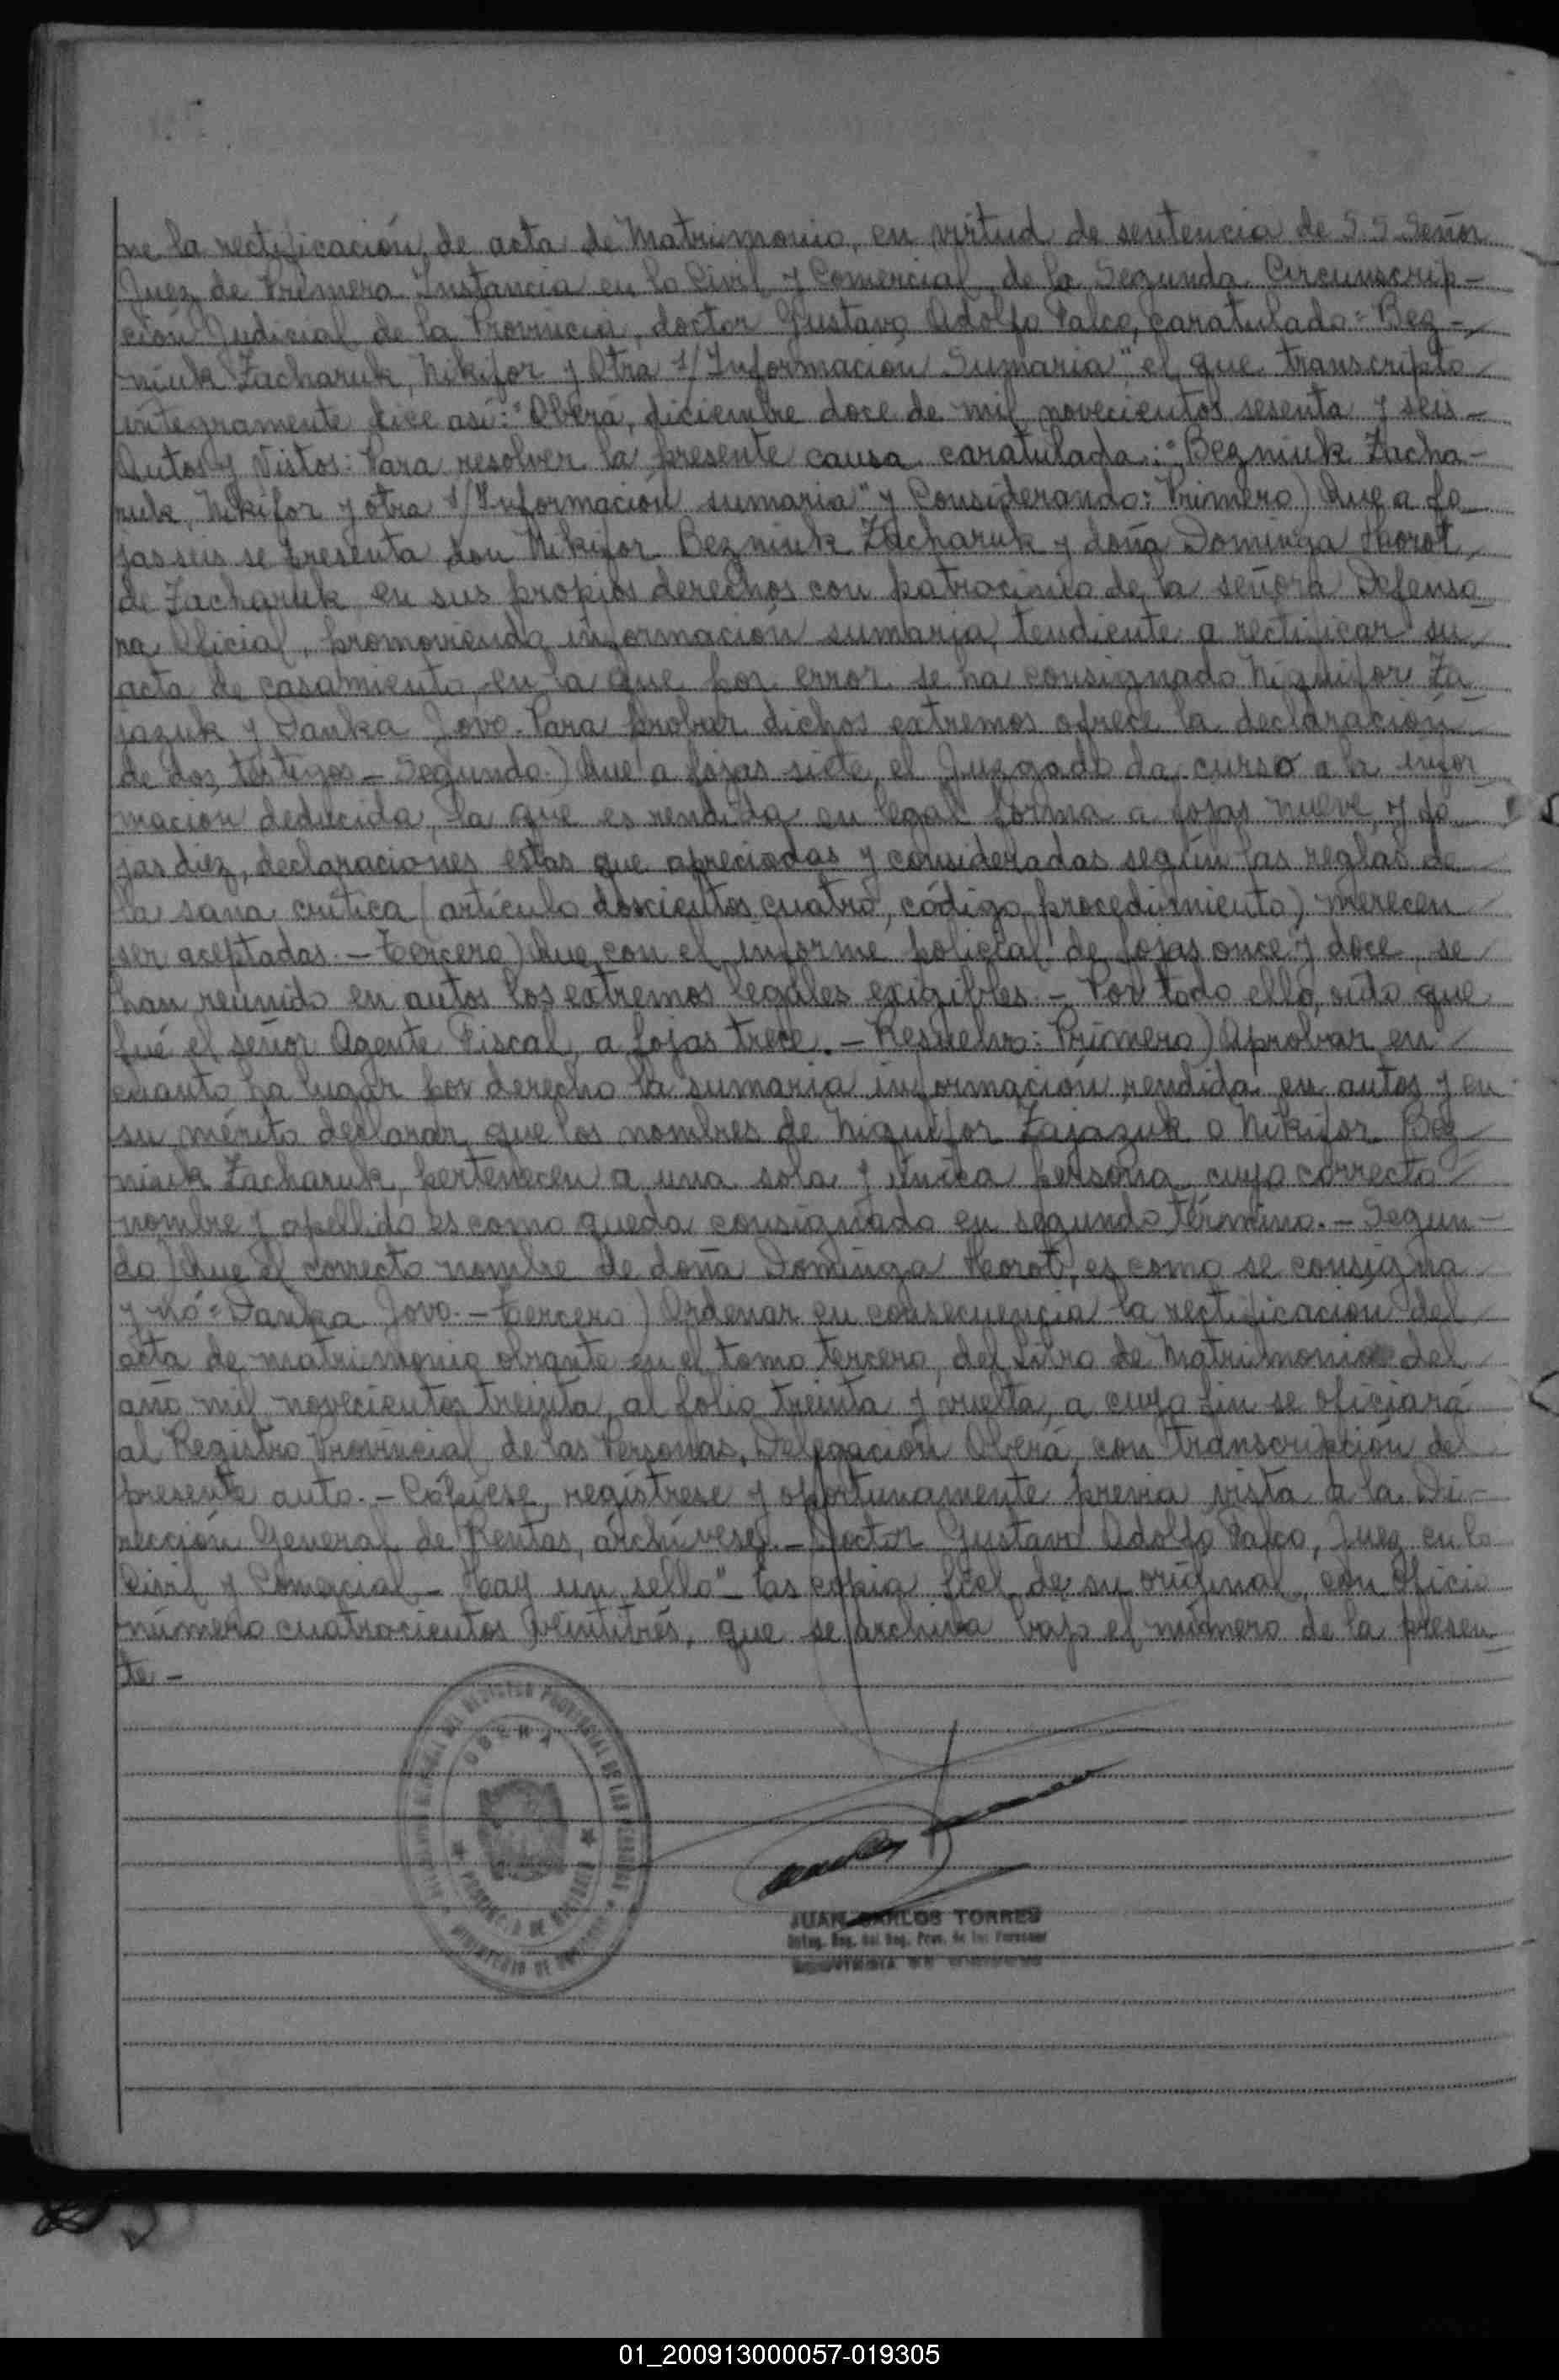 ne la rectificación de acta de Matrimonio, en virtud de sentencia de S.S. Señor
Juez de Primera Instancia en lo Civil y Comercial de la Segunda Circunscrip-
ción Judicial de la Provincia, doctor Gustavo Adolfo Palco, caratulado: "Bez-
niuk Zacharuk, Nikifor y Otra s/Información Sumaria", el que transcripto
íntegramente dice así: "Oberá, diciembre doce de mil novecientos sesenta y seis.-
Autos y Vistos: Para resolver la presente causa caratulada: "Bezniuk Zacha-
ruk, Nikifor y otra s/Información sumaria" y Considerando: Primero) Que a fo-
jas seis se presenta don Nikifor Bezniuk Zacharuk y doña Dominga Horot
de Zacharuk en sus propios derechos con patrocinio de la señora Defenso-
ra Oficial, promoviendo información sumaria, tendiente a rectificar su
acta de casamiento, en la que por error se ha consignado Niquifor Za-
jazuk y Danka Jovo. Para probar dichos extremos ofrece la declaración
de dos testigos.- Segundo) Que a fojas siete, el Juzgado da curso a la infor
mación deducida, la que es rendida en legal forma a fojas nueve y fo-
jas diez, declaraciones estas que apreciadas y consideradas según las reglas de
la sana crítica (artículo doscientos cuatro, código procedimiento) merecen
ser aceptadas.- Tercero) Que con el informe policial de fojas once y doce, se
han reunido en autos los extremos legales exigibles.- Por todo ello, oído que
fué el señor Agente Fiscal, a fojas trece.- Resuelvo: Primero) Aprobar en
cuanto ha lugar por derecho la sumaria información rendida en autos y en
su mérito declarar que los nombres de Niquifor Zajazuk o Nikifor Bez-
niuk Zacharuk, pertenecen a una sola y única persona, cuyo correcto
nombre y apellido es como queda consignado en segundo término.- Segun-
do) Que el correcto nombre de doña Dominga Horot, es como se consigna
y nó: Danka Jovo.- Tercero) Ordenar en consecuencia la rectificación del
acta de matrimonio obrante en el tomo tercero, del Libro de Matrimonio del
año mil novecientos treinta, al folio treinta y vuelta, a cuyo fin se oficiará
al Registro Provincial de las Personas, Delegación Oberá, con transcripción del
presente auto.- Cópiese, regístrese y oportunamente previa vista a la Di-
rección General de Rentas, archívese.- Doctor Gustavo Adolfo Palco, Juez en lo
Civil y Comercial.- Hay un sello".- Es copia fiel de su original, con Oficio
número cuatrocientos veintitrés, que se archiva bajo el número de la presen-
te.-
OBERA
PROVINCIA DE MISIONES
JUAN CARLOS TORRES
01_200913000057-019305